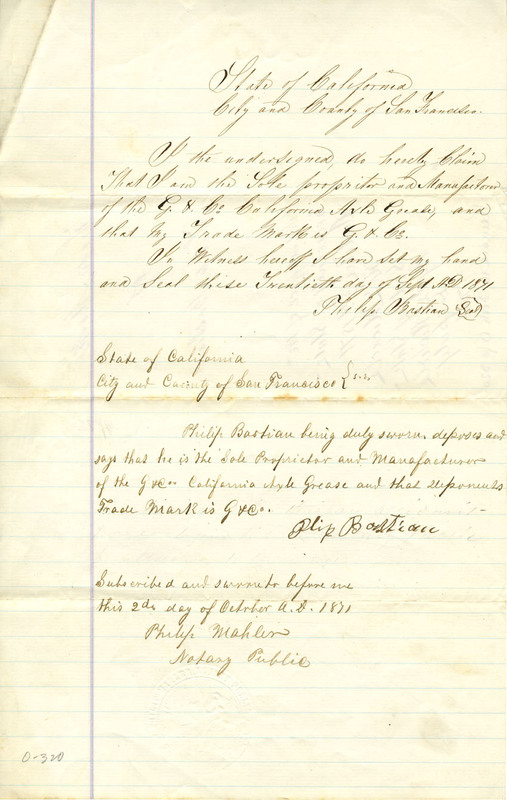 State of California
City and County of San Francisco.
I the undersigned, do hereby Claim
That I am the Sole propritor and Manufactorer
of the G. & Co. California Axle Grease, and
that my Trade Mark is G. & Co.
In Witness hereoff I have set my hand
and Seal these Twentieth day of Sept. A.D 1871
Philip Bastian Seal
State of California
City and County of San Francisco } s.s.
Philip Bastian being duly sworn deposes and
says that he is the Sole Proprietor and Manufacturer
of the G & Co. California Axle Grease and that deponents
Trade Mark is G & Co.
Plip Bastian
Subscribed and sworn to before me
this 2d day of October A.D. 1871
Philip Mahler
Notary Public
0-320